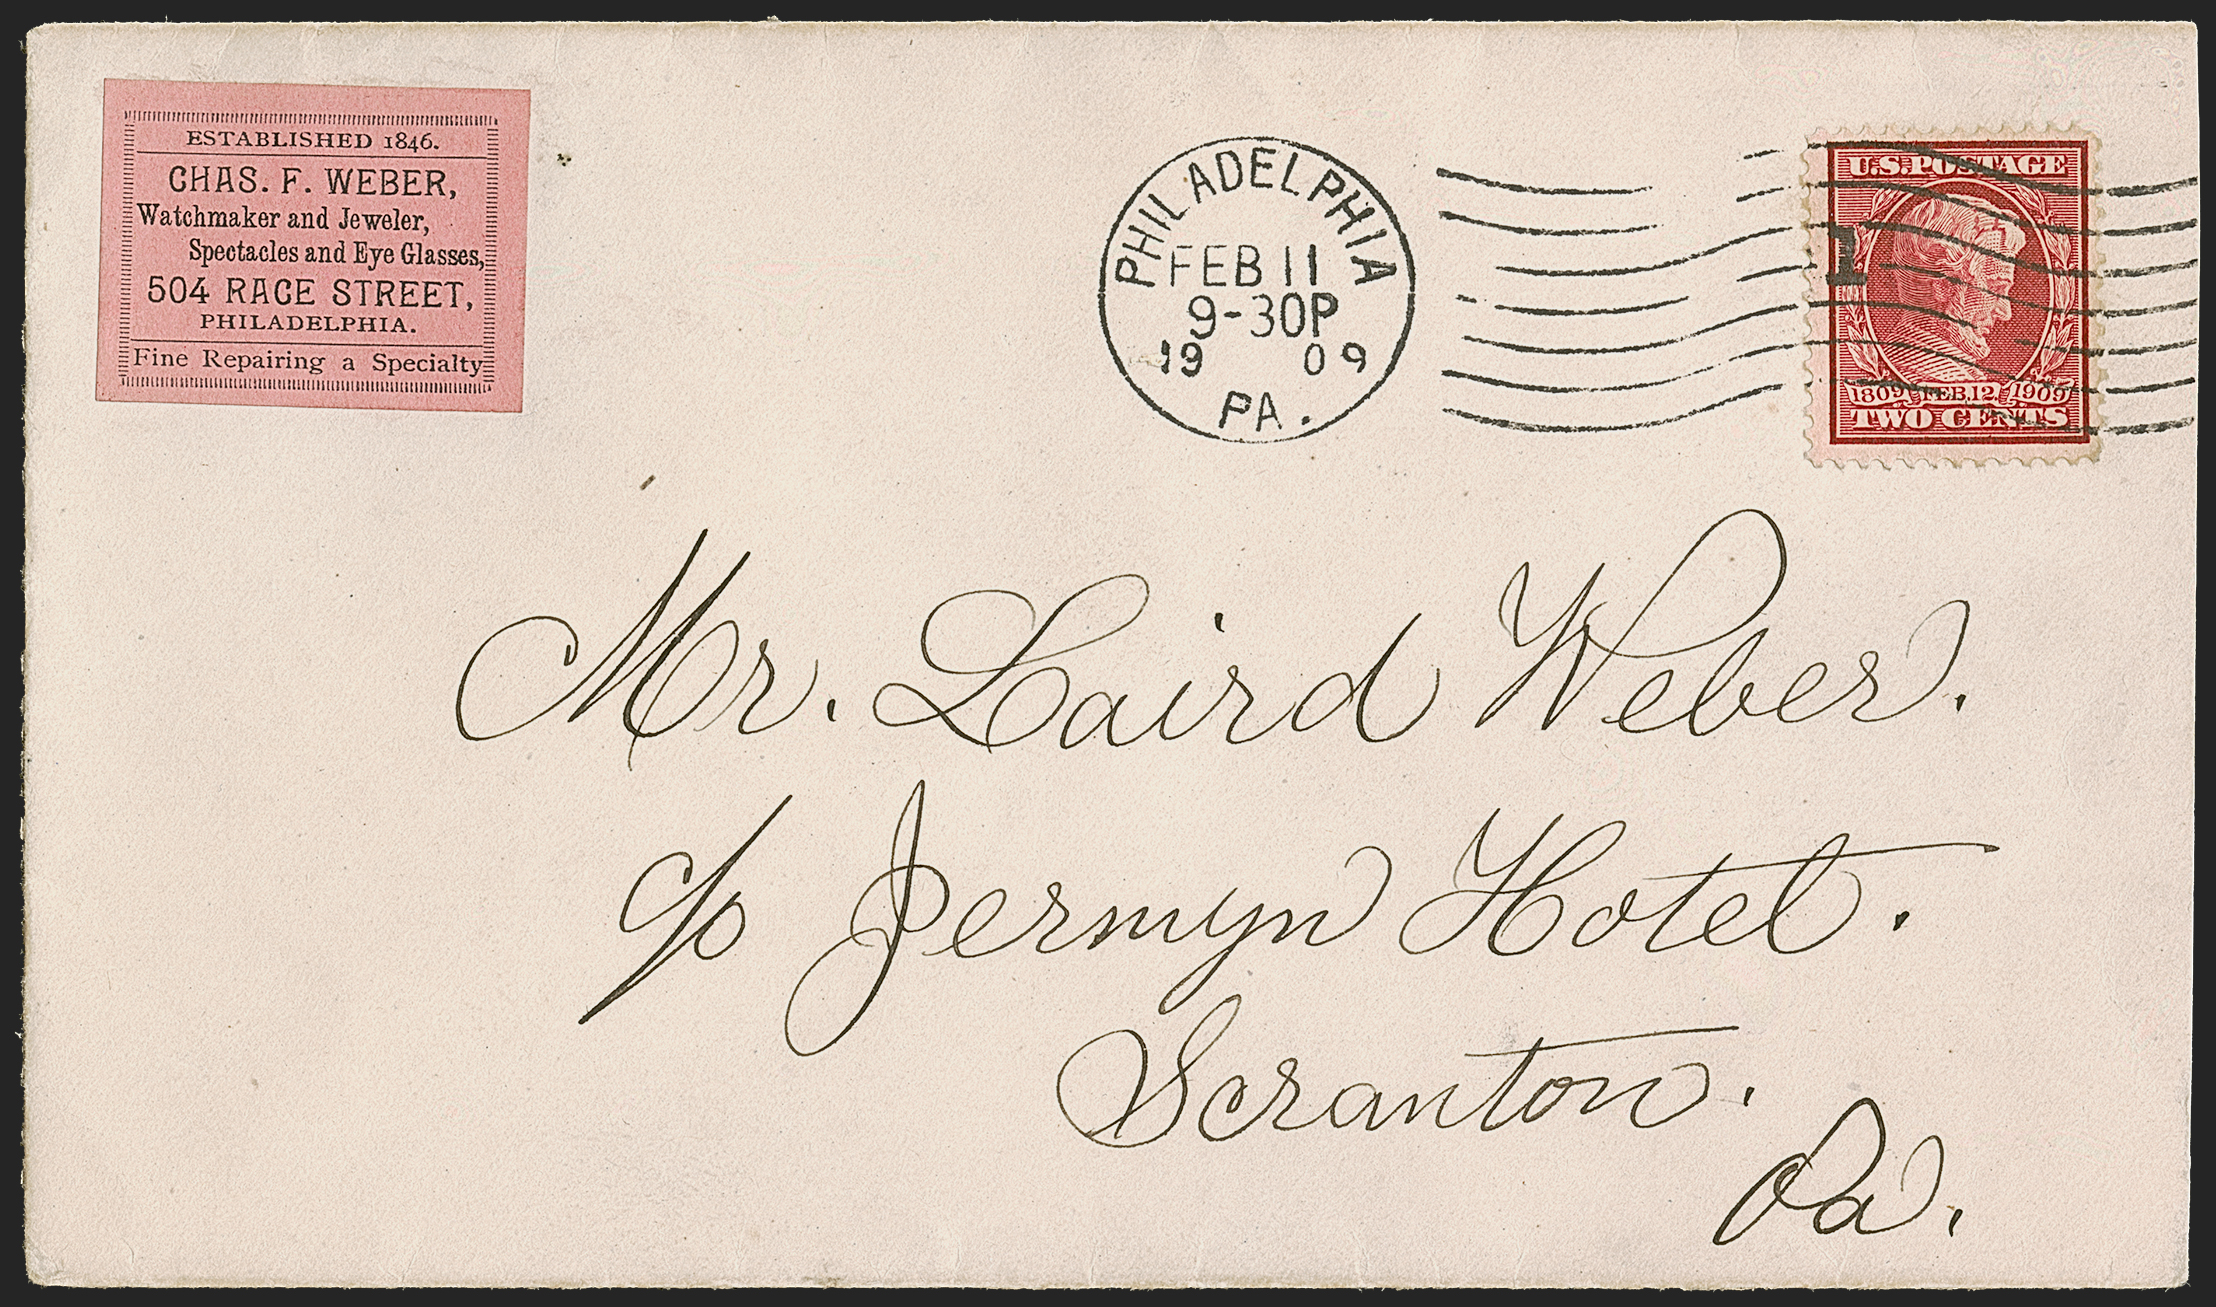 ESTABLISHED 1846.
CHAS. F. WEBER,
Watchmaker and Jeweler,
Spectacles and Eye Glasses,
504 RACE STREET,
PHILADELPHIA.
Fine Repairing a Specialty
PHILADELPHIA
FEB 11
9-30P
19 09
PA.
1
U.S. POSTAGE
1809 FEB.12. 1909
TWO CENTS
Mr. Laird Weber.
c/o Jermyn Hotel.
Scranton.
Pa.